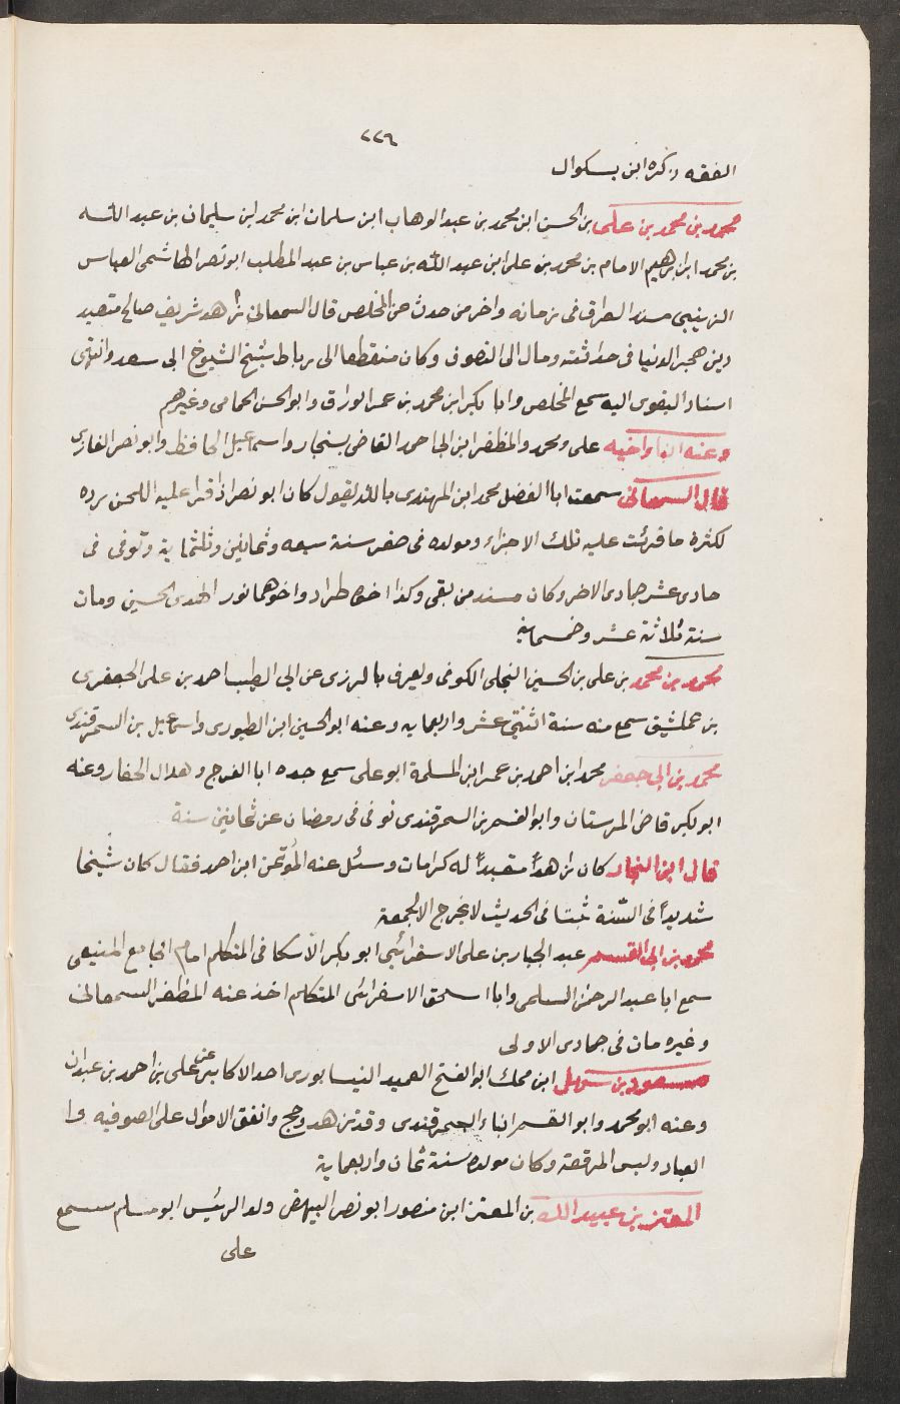 ٢٢٦
الفقه ذكره ابن بسكوال
محمد بن محمد بن علي بن الحسن ابن محمد بن عبد الوهاب ابن سلمان ابن محمد ابن سليمان بن عبد الله
بن محمد ابن ابرهيم الامام بن محمد بن علي ابن عبد الله بن عباس بن عبد المطلب ابو نصر الهاشمي العباس
الزينبي مسند العراق في زمانه واخر من حدث عن المخلص قال السمعاني زاهد شريف صالح متعبد
دين هجر الدنيا في حداثته ومال الى التصوف وكان منقطعا الى رباط شيخ الشيوخ ابي سعد وانتهى
اسناد البغوي اليه سمع المخلص وابا بكر ابن محمد بن عمر الوراق وابو الحسن الحمامي وغيرهم
وعنه اخيه علي ومحمد والمظفر ابن ابي احمد القاضي بسنجار واسماعيل الحافظ وابو نصر الغازي
قال السمعاني سمعت ابا الفضل محمد ابن المهتدي بالله يقول كان ابو نصر اذا قرا عليه اللحن يرده
لكثرة ما قرئت عليه تلك الاجزاء ومولده في صفر سنة سبعه وثمانين وثلثماية وتوفي في
حادي عشر جمادي الاخر وكان مسند من بقي وكذا اخوه طراد واخوهما نور الهدى الحسين ومات
سنة ثلاثة عشر وخمسماية
محمد بن محمد بن علي بن الحسين النجلي الكوفي ويعرف بالرزى عن ابي الطيب احمد بن علي الجعفري
بن عمليق سمع منه سنة اثنتي عشر واربعمايه وعنه ابو الحسين ابن الطيوري واسماعيل بن السمرقندي
محمد بن ابي جعفر محمد ابن احمد بن عمر ابن المسلمة ابو علي سمع جده ابا الفرج وهلال الحفار وعنه
ابو بكر قاضي المرستان وابو القسم بن السمرقندي توفي في رمضان عن ثمانين سنة
قال ابن النجار كان زاهداً متعبداً له كرامات وسئل عنه المؤتمن ابن احمد فقال كان شيخا
شديداً في السّنة ثبتا في الحديث لا يخرج الا لجمعة
محمد بن ابي القسم عبد الجبار بن علي الاسفرائيي ابو بكر الاسكافي المتكلم امام الجامع المنيعي
سمع ابا عبد الرحمن السلمي وابا اسحق الاسفرائي المتكلم اخذ عنه المظفر السمعاني
وغيره مات في جمادي الاولى
مسعود بن سهل ابن محمك ابو الفتح العميد النيسابوري احد الاكابر عن علي بن احمد بن عبدان
وعنه ابو محمد وابو القسم ابناء السمرقندي وقد تزهد وحج وانفق الاموال على الصوفيه وا
العباد ولبس المرقعة وكان مولده سنة ثمان واربعماية
المعتز بن عبيد الله بن المعتز ابن منصور ابو نصر البيهقي ولد الرئيس ابو مسلم سمع
على